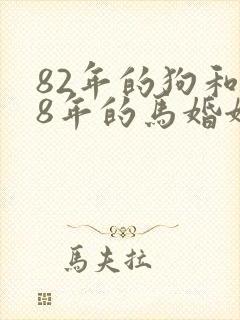 82年的狗和
8年的馬婚
馬夫拉